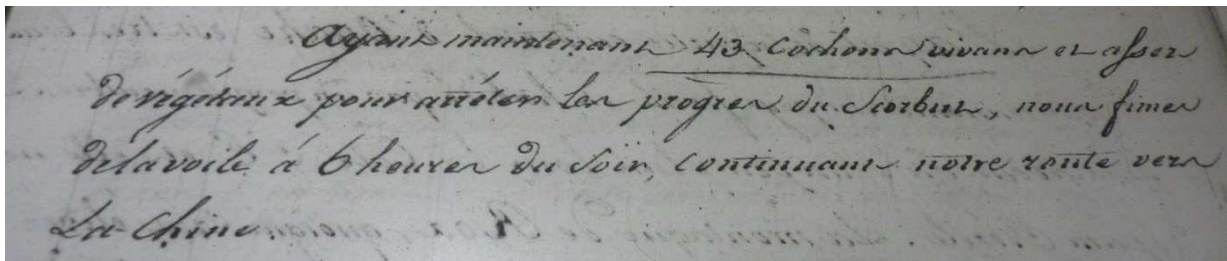 Ayant maintenant 43. Cochons vivans et assez
de végétaux pour arrêter les progres du Scorbut, nous fimes
de la voile à 6 heures du Soir, continuant notre route vers
La Chine.